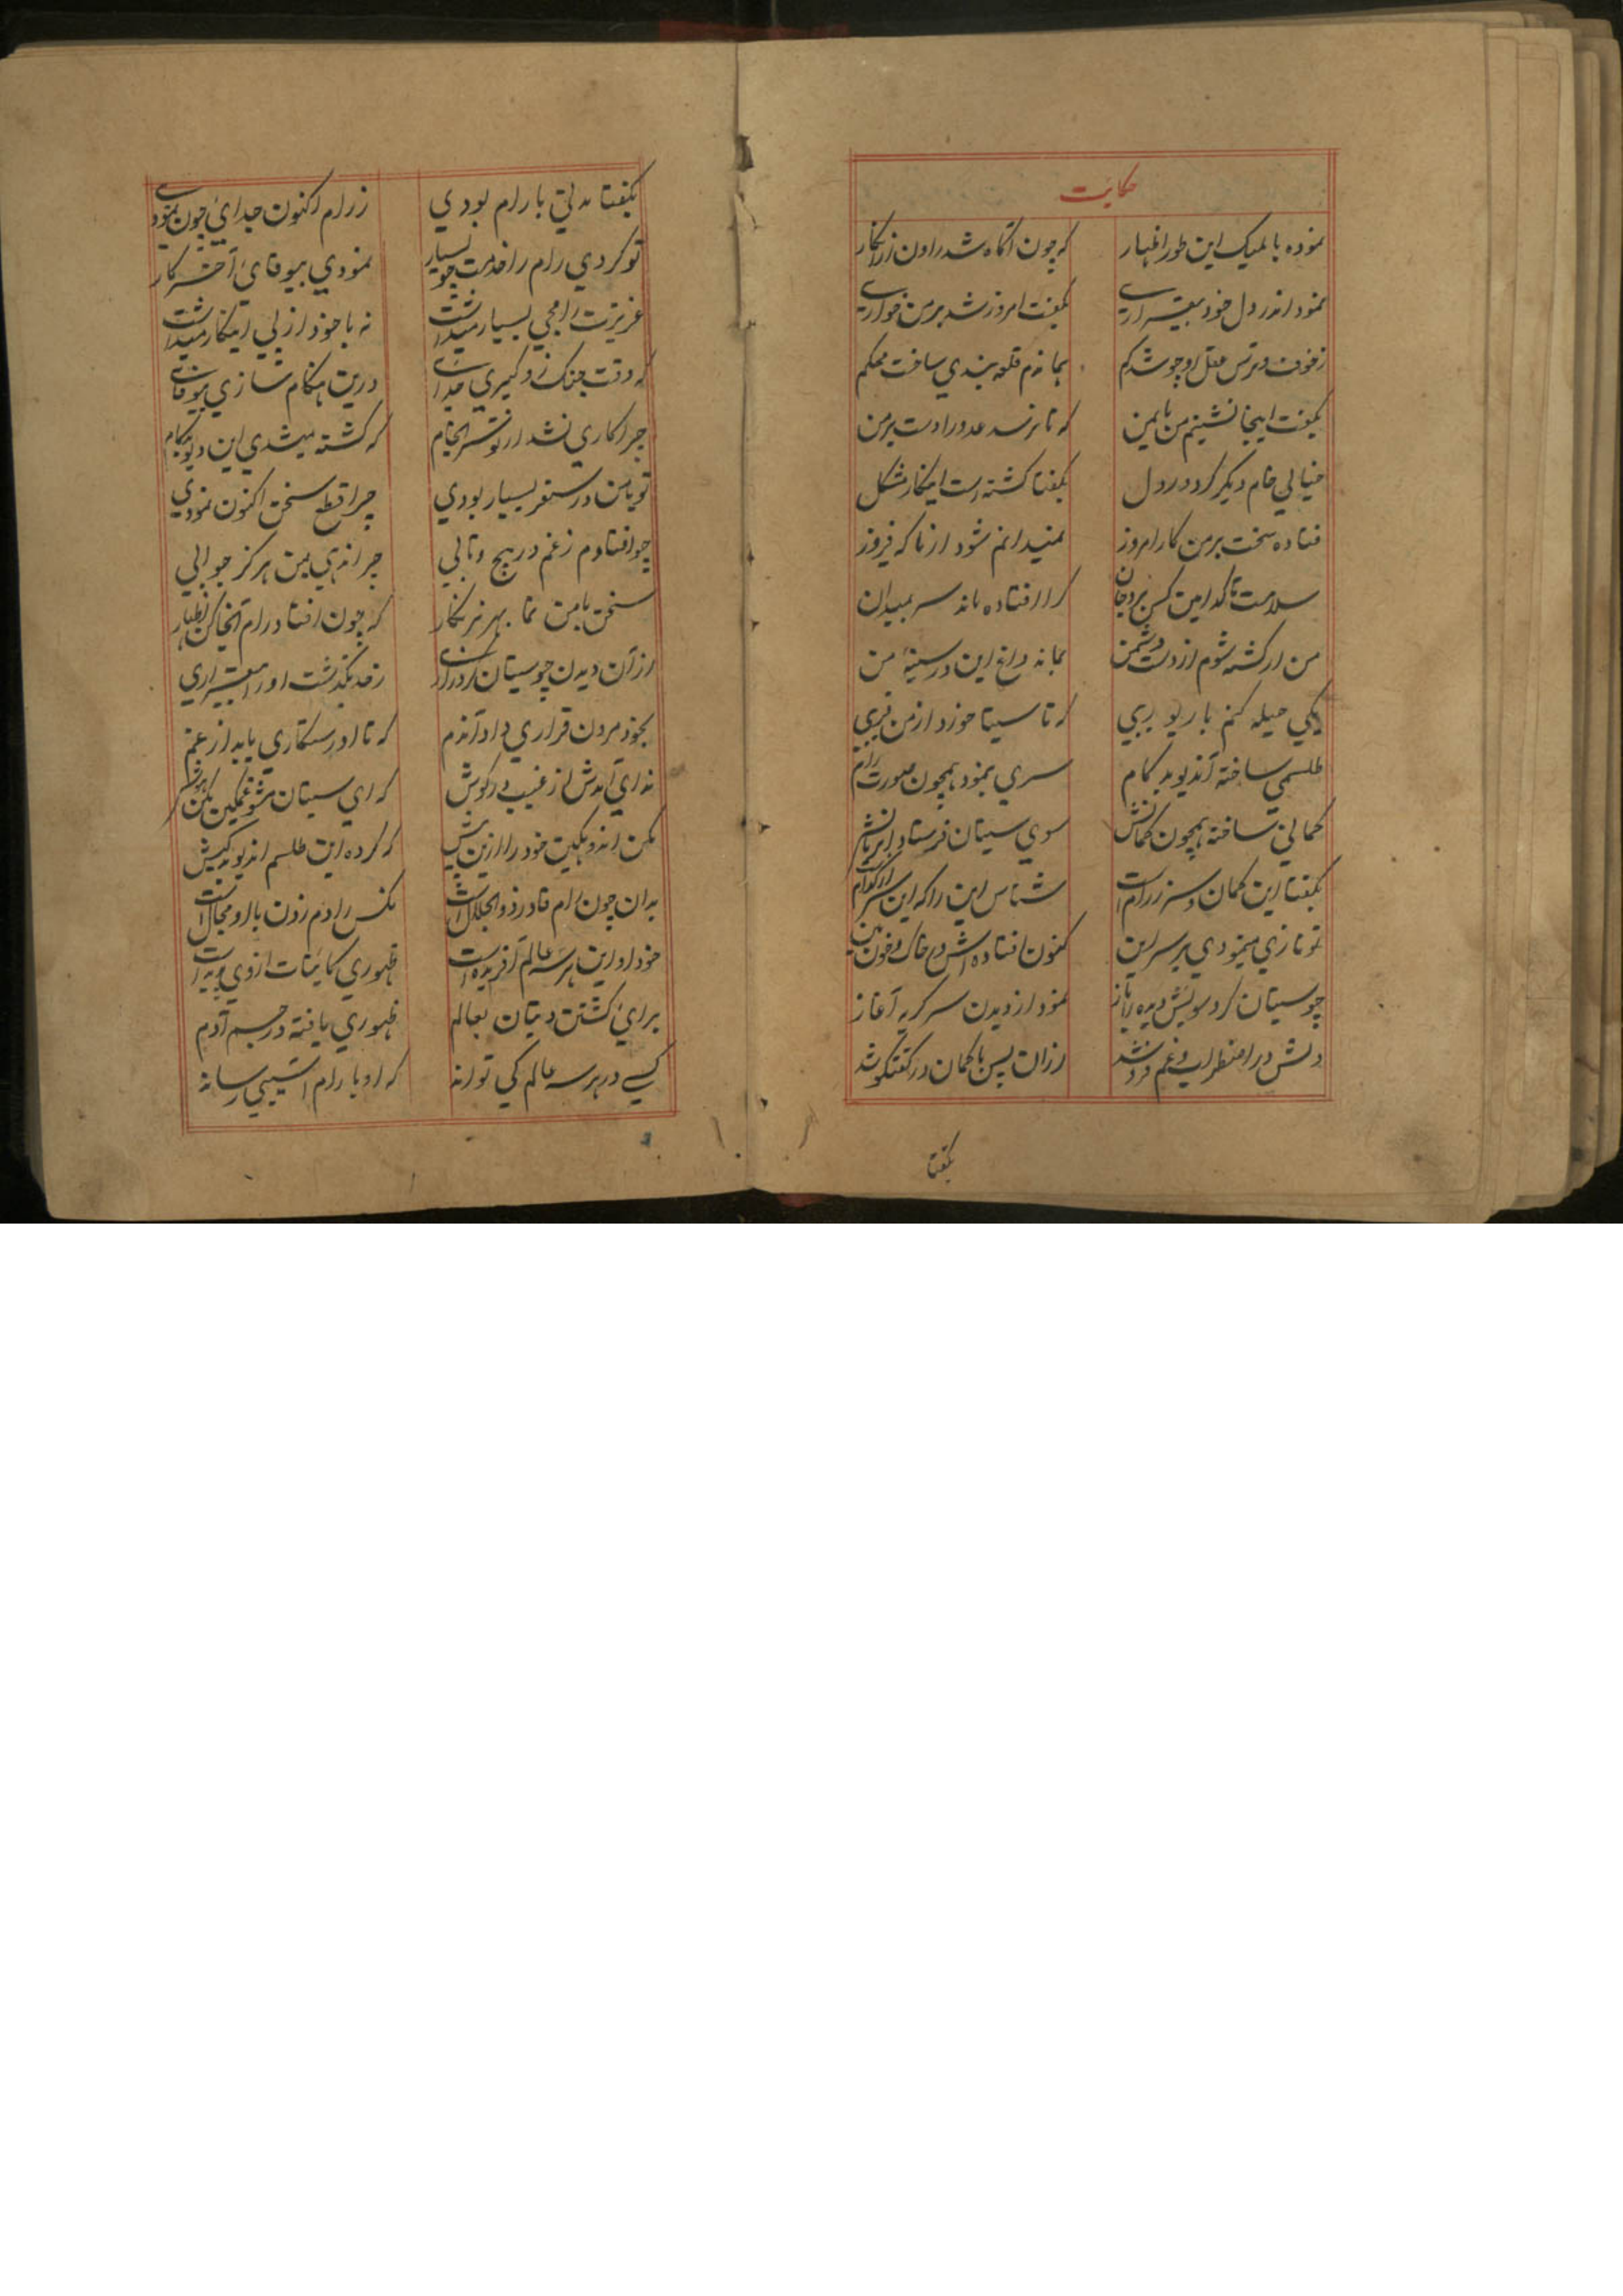 حکایت
نموده بالمیک این طور اظهار که چون آگاه شد راون ز انکار
نمود اندر دل خود بیقراری بگفت امروز شد بر من خواری
ز خوف و ترس عقل او چو شد کم بماندم قلعه بندی ساخت محکم
بگفت اینجا نشینم من بایمن که تا نرسد عدو را دست بر من
خیالی خام دیگر کرد در دل بگفتا گشته است اینکار مشکل
فتاده سخت بر من کار امروز نمیدانم شود از ما که فیروز
سلامت تا کدامین کس برد جان کرا افتاده ماند سر بمیدان
من ار کشته شوم از دست دشمن بماند داغ این در سینهٔ من
یکی حیله کنم با ریو ریبی که تا سیتا خورد از من فریبی
طلسمی ساخته آندیو بدکام سری بنمود همچون صورت رام
کمانی ساخته همچون کمانش سوی سیتان فرستاد
بگفتا این کمان و سر ز رام است شناس این را که این سر از کدام است
تو نازی مینمودی بر سر این کنون افتاده اش در خاک و خون بین
چو سیتان کرد سویش دیده را باز نمود از دیدن سر گریه آغاز
دلش در اضطراب و غم فرو شد از ان پس با کمان در گفتگو شد
بگفتا
بگفتا مدتی با رام بودی ز رام اکنون جدائی چون نمودی
تو کردی رام را خدمت چو بسیار نمودی بیوفائی آخر کار
عزیزت رامجی بسیار میداشت نه با خود از پی اینکار میداشت
که وقت جنگ زو گیری جدائی درین هنگام سازی بیوفائی
چرا کاری نشد از تو سرانجام که کشته میشدی این دیو بدکام
تو با من در سفر بسیار بودی چرا قطع سخن اکنون نمودی
چو افتادم ز غم در پیچ و تابی چرا ندهی بمن هرگز جوابی
سخن با من نما بهر نگار که چون افتاد رام آنجا کن اظهار
از آن دیدن چو سیتان کرد زاری ز حد بگذشت او را بیقراری
بخود مردن قراری داد آندم که تا او رستگاری یابد از غم
ندای آمدش از غیب در گوش که ای سیتان مشو غمگین بکن هوش
مکن اندوهگین خود را ازین بیش که کرده این طلسم آندیو بدکیش
بدان چون رام قادر ذوالجلال است نکس را دم زدن با او مجال است
خود او این هر سه عالم آفریده است ظهوری کائنات از وی پدید است
برای کشتن دیتان بعالم ظهوری یافته در جسم آدم
کسی در هر سه عالم کی تواند که او با رام آسیبی رساند